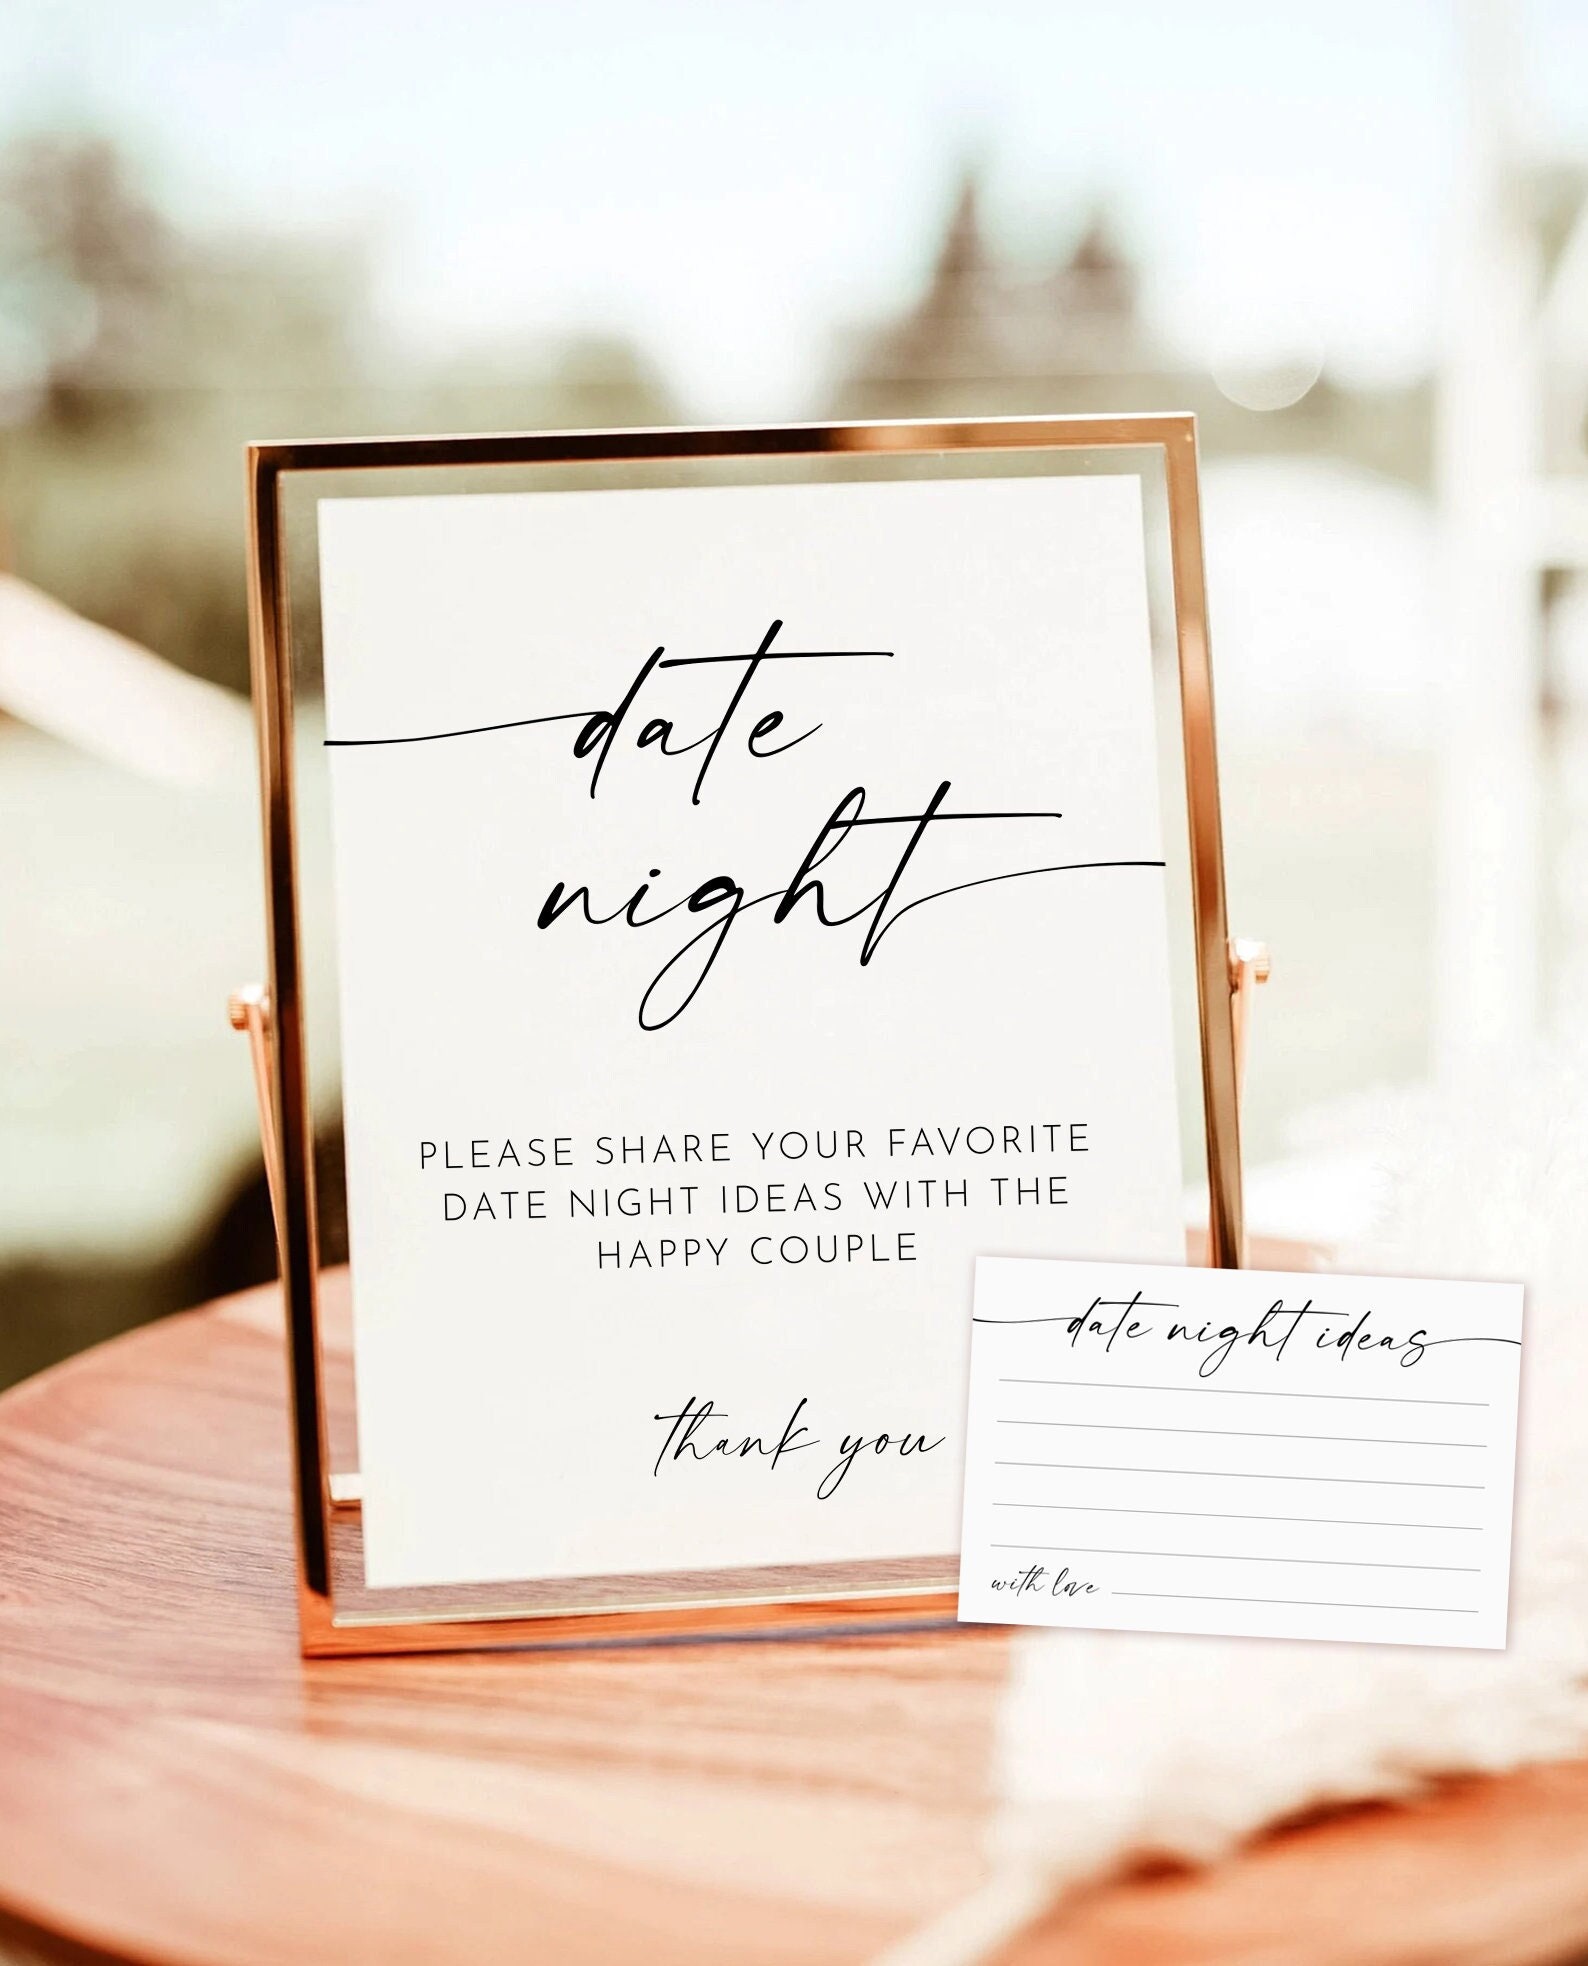 date
night
PLEASE SHARE YOUR FAVORITE
DATE NIGHT IDEAS WITH THE
HAPPY COUPLE
thank you
date night ideas
with love